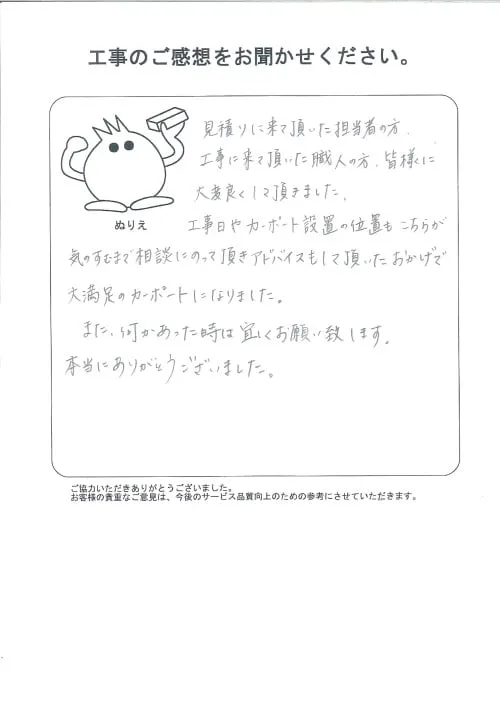 工事のご感想をお聞かせください。
見積りに来て頂いた担当者の方、
工事に来て頂いた職人の方、皆様に
大変良くして頂きました。
ぬりえ
工事日やカーポート設置の位置もこちらが
気のすむまで相談にのって頂きアドバイスもして頂いたおかげで
大満足のカーポートになりました。
また、何かあった時は宜しくお願い致します。
本当にありがとうございました。
ご協力いただきありがとうございました。
お客様の貴重なご意見は、今後のサービス品質向上のための参考にさせていただきます。